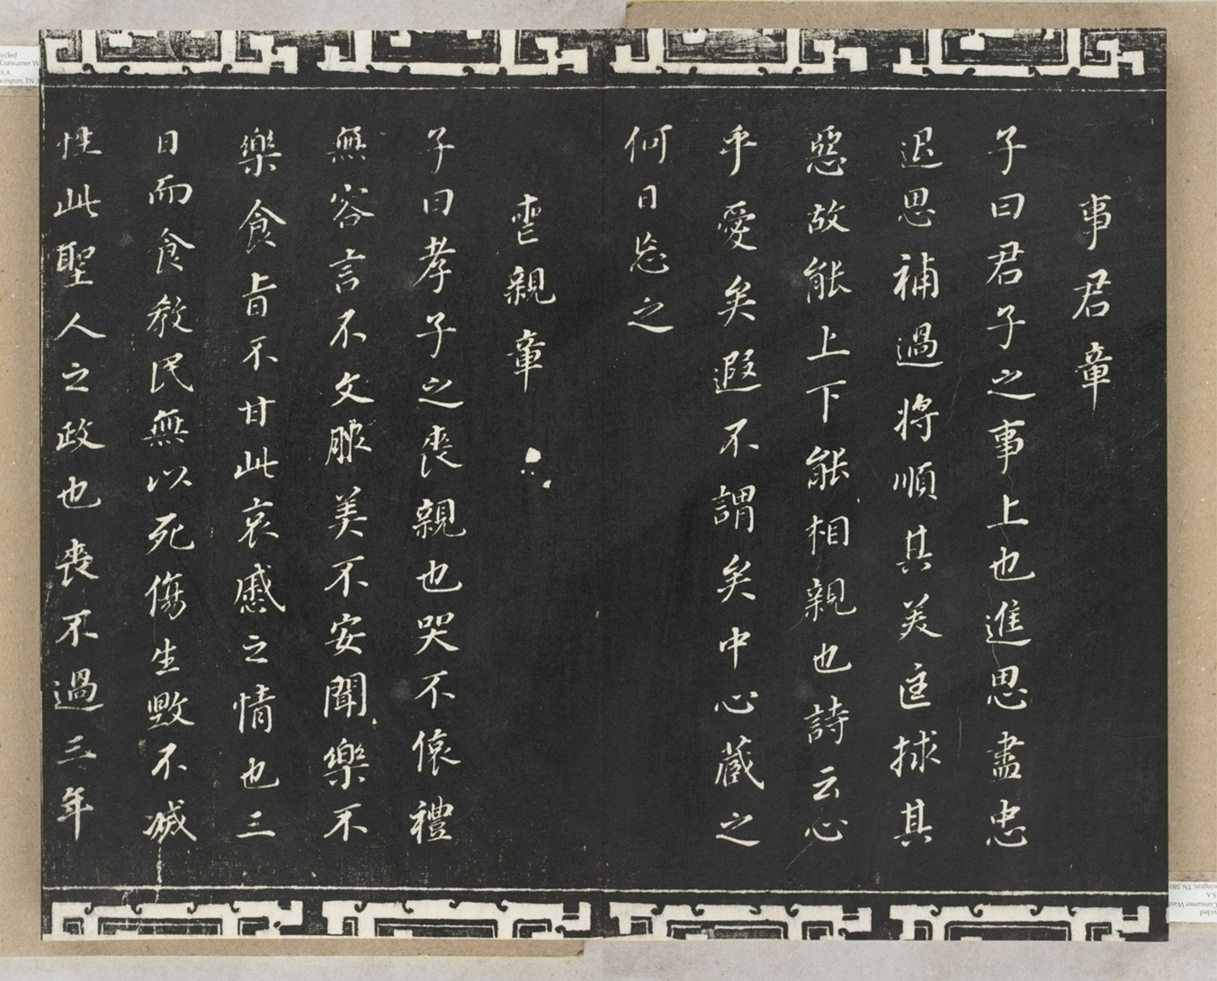 事君章
子曰君子之事上也進思盡忠
退思補過將順其美匡捄其
惡故能上下能相親也詩云心
乎愛矣遐不謂矣中心藏之
何日忘之
喪親章
子曰孝子之喪親也哭不偯禮
無容言不文服美不安聞樂不
樂食旨不甘此哀慼之情也三
日而食教民無以死傷生毀不滅
性此聖人之政也喪不過三年